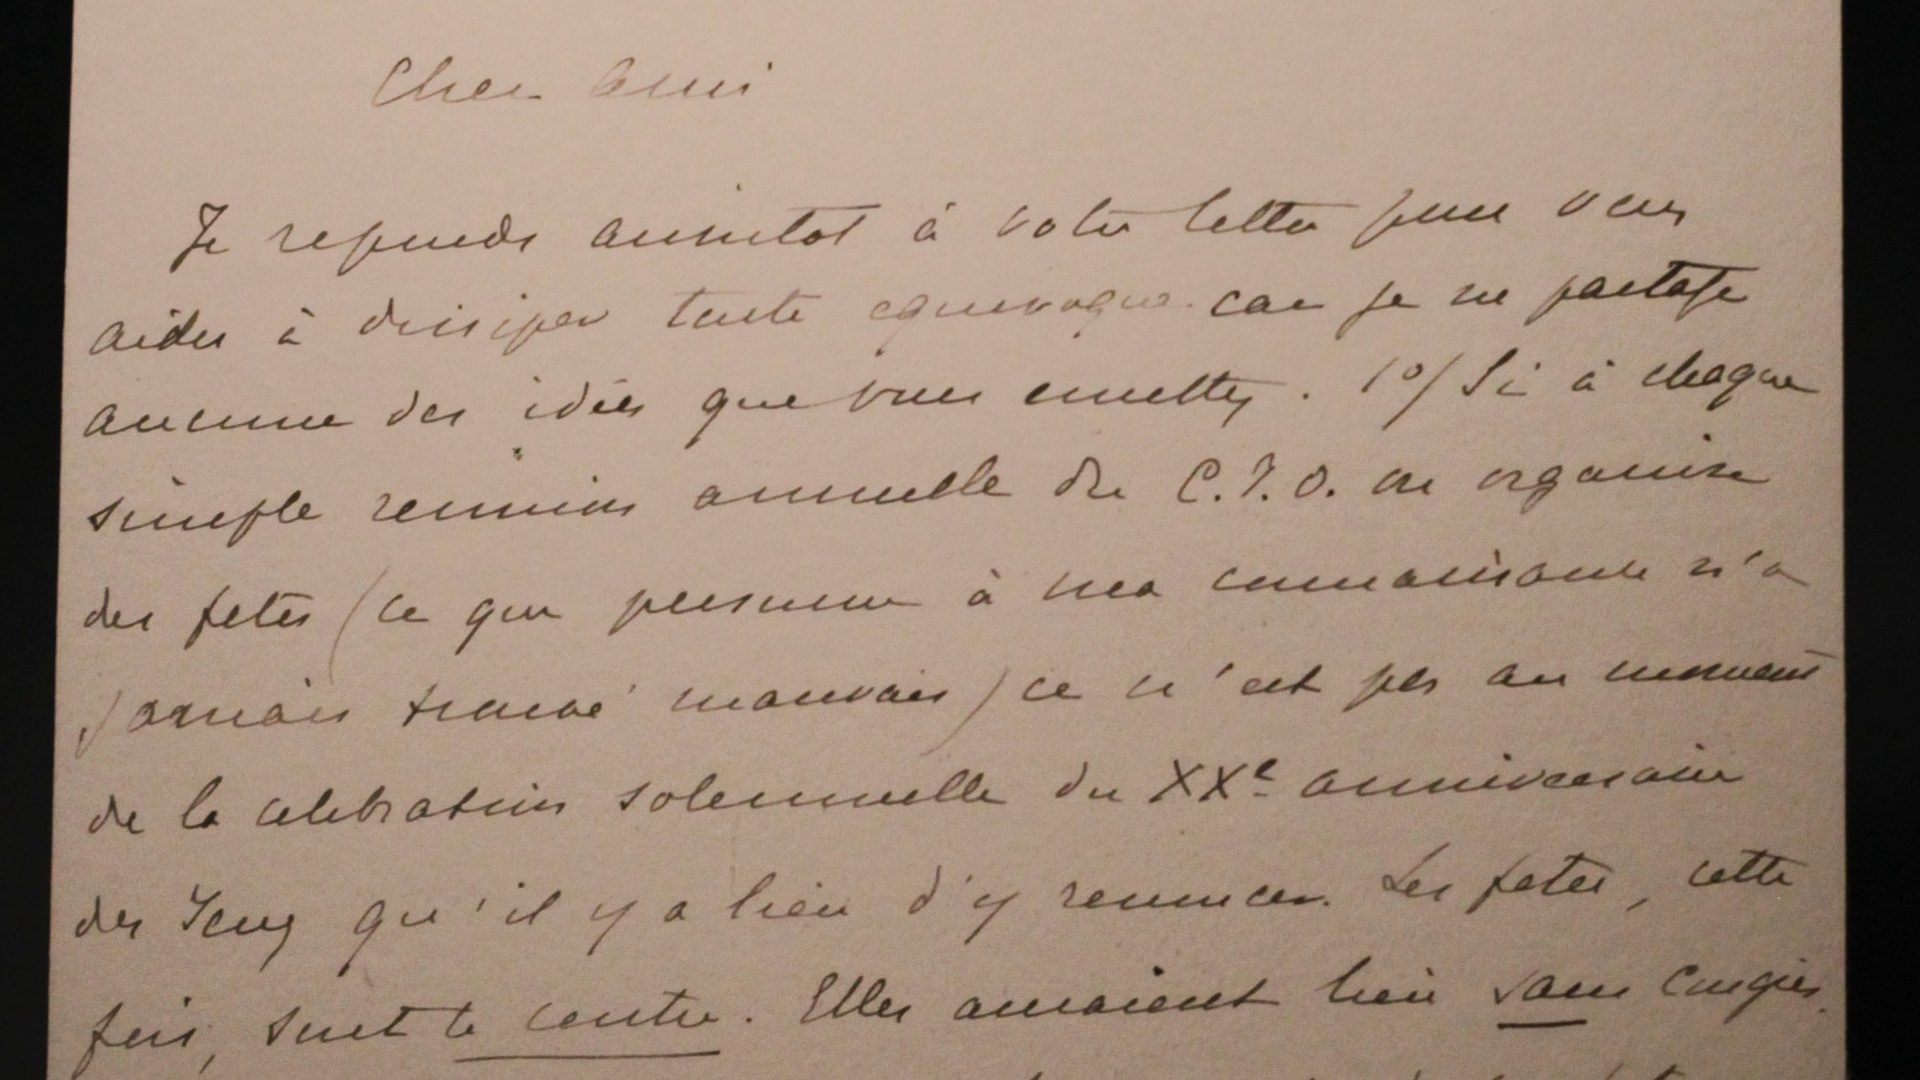 Cher Ami
Je reponds aussitot à votre lettre pour vous
aider à dissiper toute equivoque. car je ne partage
aucune des idées que vous emettez. 1º/ Si à chaque
simple reunion annuelle du C.I.O. on organise
des fetes (ce que personne à ma connaissance n'a
jamais trouvé mauvais) ce n'est pas au moment
de la celebration solennelle du XXe anniversaire
des Jeux qu'il y a lieu d'y renoncer. Les fetes, cette
fois, sont le centre. Elles auraient lieu sans Congrès.